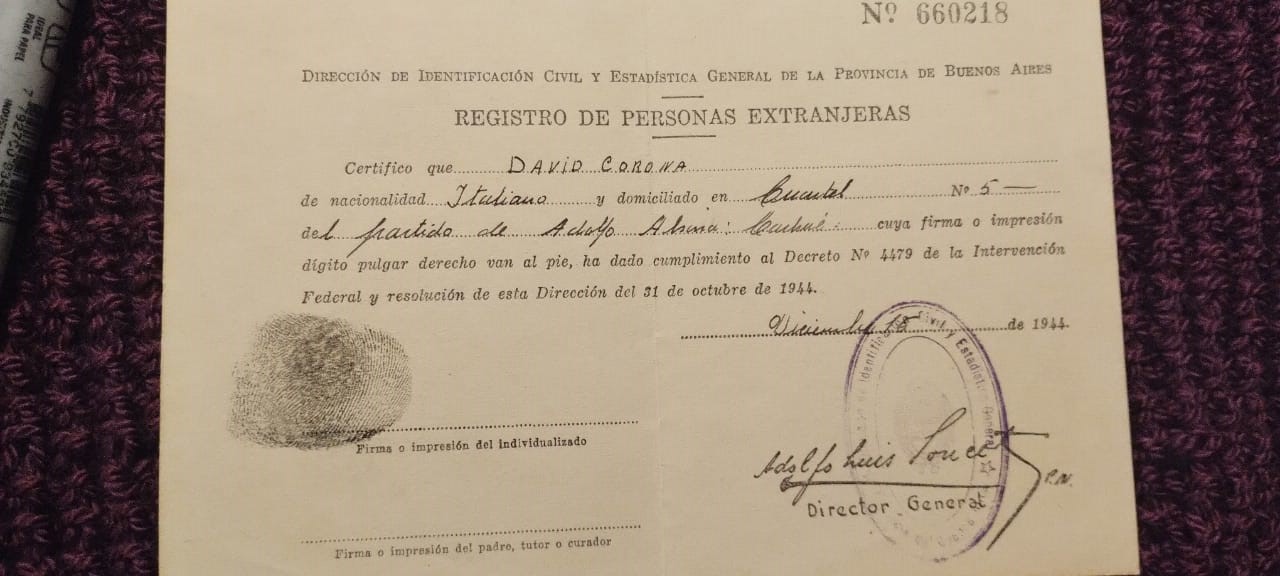 Nº 660218
DIRECCIÓN DE IDENTIFICACIÓN CIVIL Y ESTADÍSTICA GENERAL DE LA PROVINCIA DE BUENOS AIRES
REGISTRO DE PERSONAS EXTRANJERAS
Certifico que DAVID CORONA
de nacionalidad Italiano y domiciliado en Cuartel Nº 5 —
del partido de Adolfo Alsina: Carhué. cuya firma o impresión
dígito pulgar derecho van al pie, ha dado cumplimiento al Decreto Nº 4479 de la Intervención
Federal y resolución de esta Dirección del 31 de octubre de 1944.
Diciembre 15 de 1944.
Civil y Estadística General
Firma o impresión del individualizado
Adolfo Luis
P.N.
Director General
Firma o impresión del padre, tutor o curador
IDEAL
PARA PAPEL